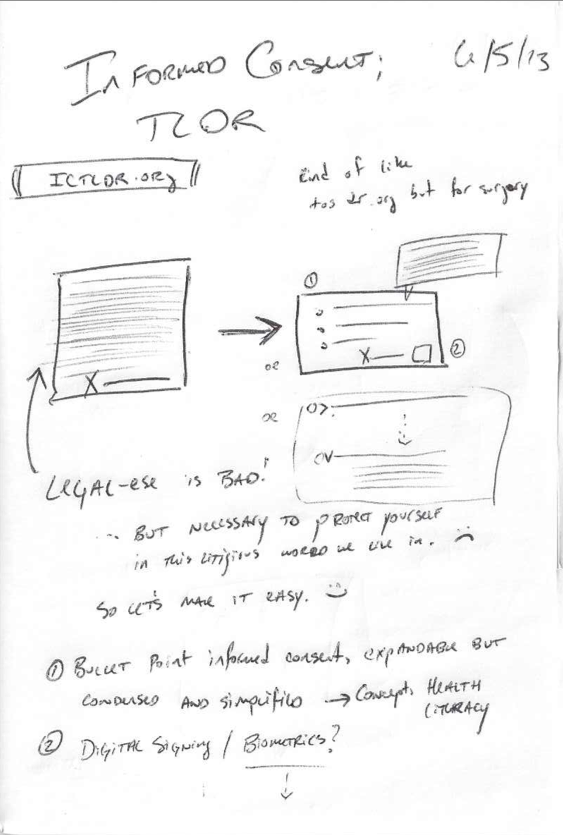 Informed Consent;
6/5/13
TLDR
ICTLDR.org
Kind of like
tos dr.org but for surgery
①
X
X
②
OR
OR
LEGAL-ese is BAD!
... BUT NECESSARY TO PROTECT YOURSELF
in this litigious world we live in. :(
So let's make it easy. :)
① Bullet Point informed consent, expandable but
condensed and simplified → Concept, HEALTH
LITERACY
② DIGITAL SIGNING / BIOMETRICS?